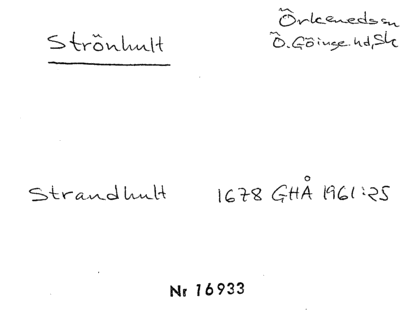 Strönhult
Örkeneds sn
Ö. Göinge hd, Sk
Strandhult 1678 GHÅ 1961:25
Nr 16933